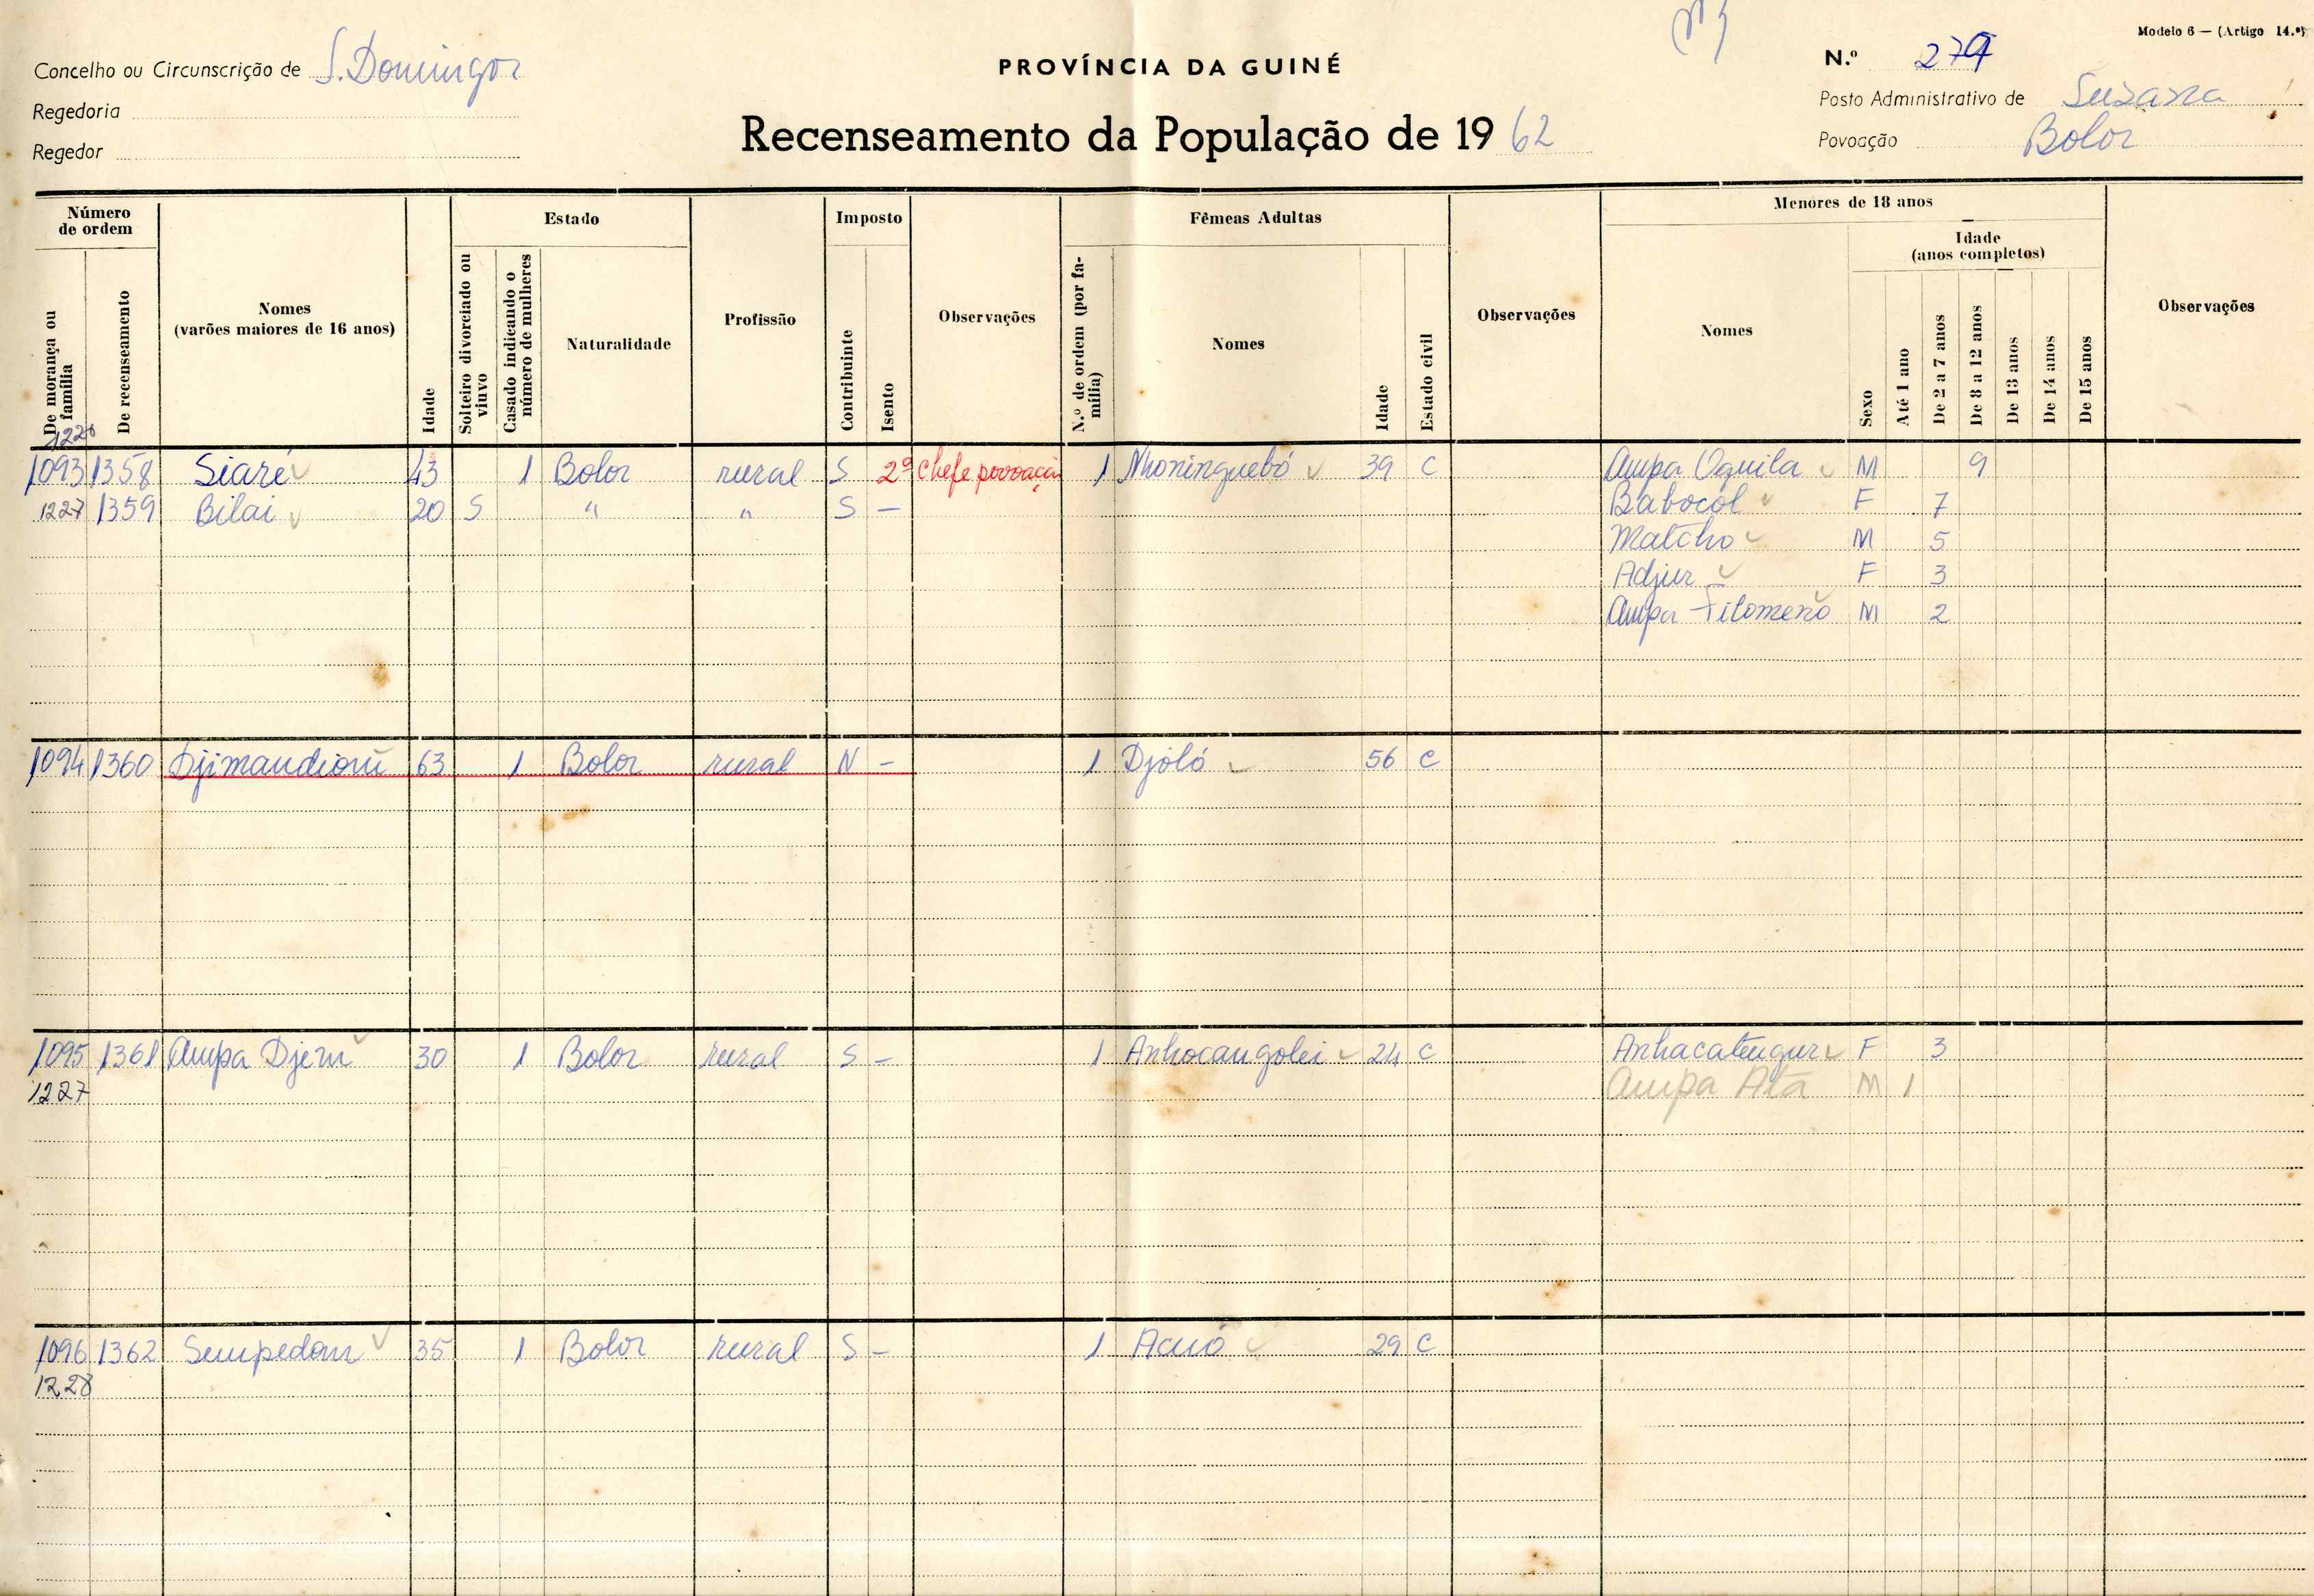 Modelo 6 — (Artigo 14.º)
Concelho ou Circunscrição de S. Domingos
PROVÍNCIA DA GUINÉ
N.º 279
Regedoria
Posto Administrativo de Suzana
Regedor
Recenseamento da População de 1962
Povoação Bolor
Número de ordem
Estado
Imposto
Fêmeas Adultas
Menores de 18 anos
Idade (anos completos)
De morança ou família
De recenseamento
Nomes (varões maiores de 16 anos)
Idade
Solteiro divorciado ou viuvo
Casado indicando o número de mulheres
Naturalidade
Profissão
Contribuinte
Isento
Observações
N.º de ordem (por família)
Nomes
Idade
Estado civil
Observações
Nomes
Sexo
Até 1 ano
De 2 a 7 anos
De 8 a 12 anos
De 13 anos
De 14 anos
De 15 anos
Observações
1226
1093 1358 Siaré 43 1 Bolor rural S 2º Chefe povoação 1 Nhoninguebó 39 C Ampa Oquila M 9
1227 1359 Bilai 20 S " " S — Babocol F 7
Matcho M 5
Adjur F 3
Ampa Filomeno M 2
1094 1360 Djimandioni 63 1 Bolor rural N - 1 Djóló 56 C
1095 1361 Ampa Djeru 30 1 Bolor rural S - 1 Anhocangolei 24 C Anhacatengur F 3
1227 Ampa Ata M 1
1096 1362 Sempedom 35 1 Bolor rural S - 1 Acuó 29 C
1228